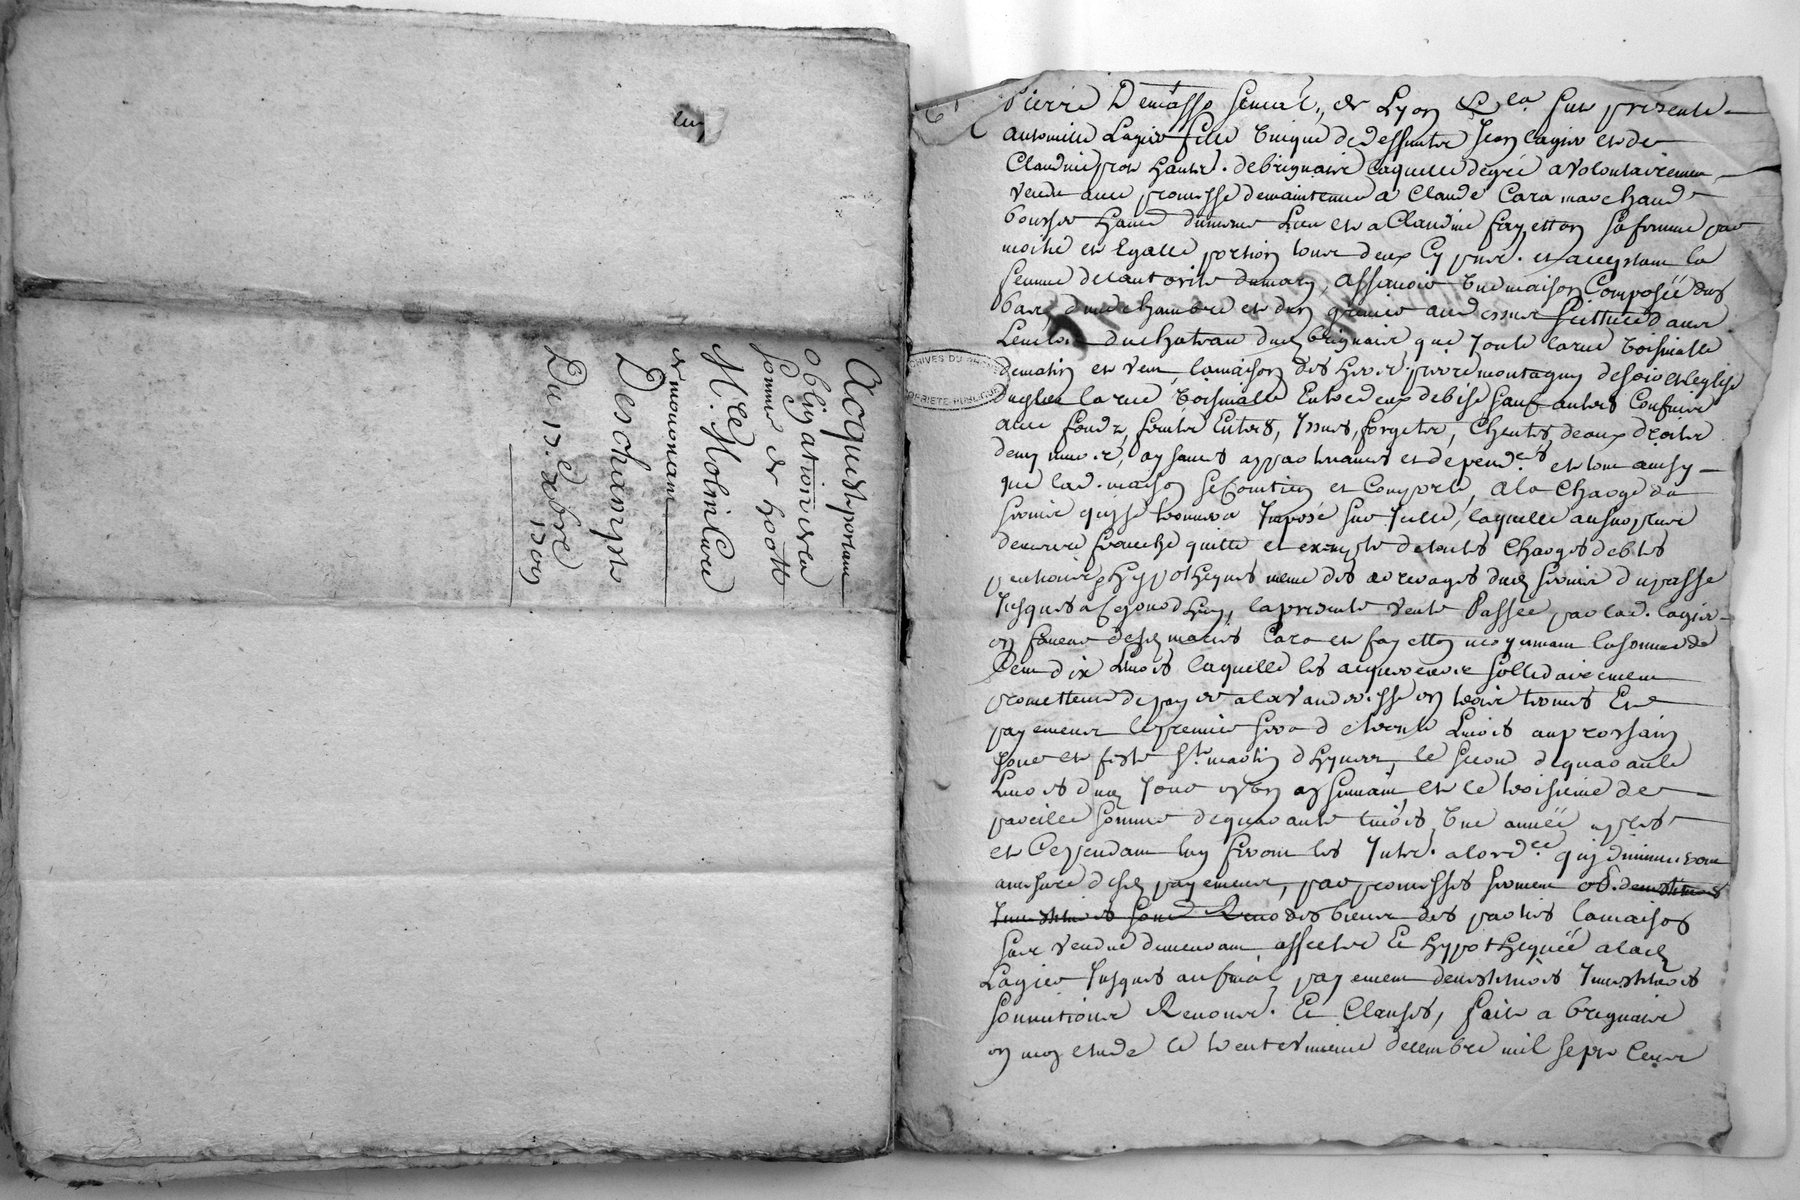 luy
Acquest portant
obligation de la
somme de
Me. Molin Cure
de mononcam
Deschamps
Du 17e. xbre
ARCHIVES DU RHONE
PROPRIÉTÉ PUBLIQUE
Pierre Demasso senecal, de Lyon &a. fut presente
antoinette Lagier fille unique de deffuntz Jean lagier et de
Claudine habit. de brignaire laquelle de gré a volontairement
vendu avec promesse de maintenue a Claude Cara marchand
boucher habit dumeme lieu et a Claudine fayetton sa femme par
moitié et Egalle portion tous deux Cy pnt. et acceptant la
femme de lautorite dumary, assavoir Une maison Composée dun
bas, d'une chambre et dun grenier audessus scittuée dans
lenclos duchateau dud. brignaire, que Joute la rue voisinalle
dematin et vent, la maison des hoirs pierre montagny de soir et leglise
duglise la rue voisinalle Entredeux de bise sauf autres Confins
avec fondz, Entrés, Issues, forgetz, Cheutes deaux droitz
demy murs, aysances appartenances et depend.es et tout ainsy
que lad. maison se Contient et Comporte, a la Charge du
servis quy se trouvera Imposé sur Icelle, laquelle ausurplus
demeure franche quitte et exempte detoutes Charges debtes
pentions hyppotheques meme des arrerages dud. servis du passe
Jusques a Cejourdhuy, la presente vente Passée par lad. lagier
en faveur desd. mariés Cara et fayetton moyennant la somme de
Cent dix Livres laquelle les acquereurs sollidairement
promettent de payer a la vanderesse en trois termes Et
payement le premier sera de trente Livres au prochain
Jour et feste St. martin dhyver, le second de quarante
Livres dud. Jour en un an suivant et le troisieme de
pareille somme de quarante livres Une année apres
et Cependant luy feront les Intr. a lord.ce quy diminueront
amesure desd. payement, par promesses serment ob. de restitu
des biens des parties la maison
sus vendue demeurant affectée Et hyppothequée a lad.
Lagier Jusques aufinal payement devestitures Investitures
soumitions Renons. Et Clauses, fait a brignaire
en mon etude le trente unieme decembre mil sept Cent